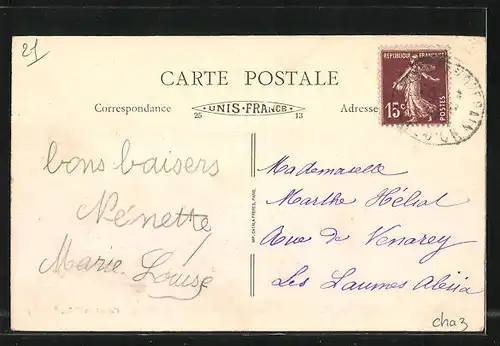 21
CARTE POSTALE
Correspondance
UNIS-FRANCE
25
13
Adresse
RÉPUBLIQUE FRANÇAISE
15c
POSTES
bons baisers
Nénette
Marie-Louise
Mademoiselle
Marthe Héliot
Rue de Venarey
Les Laumes Alésia
cha3